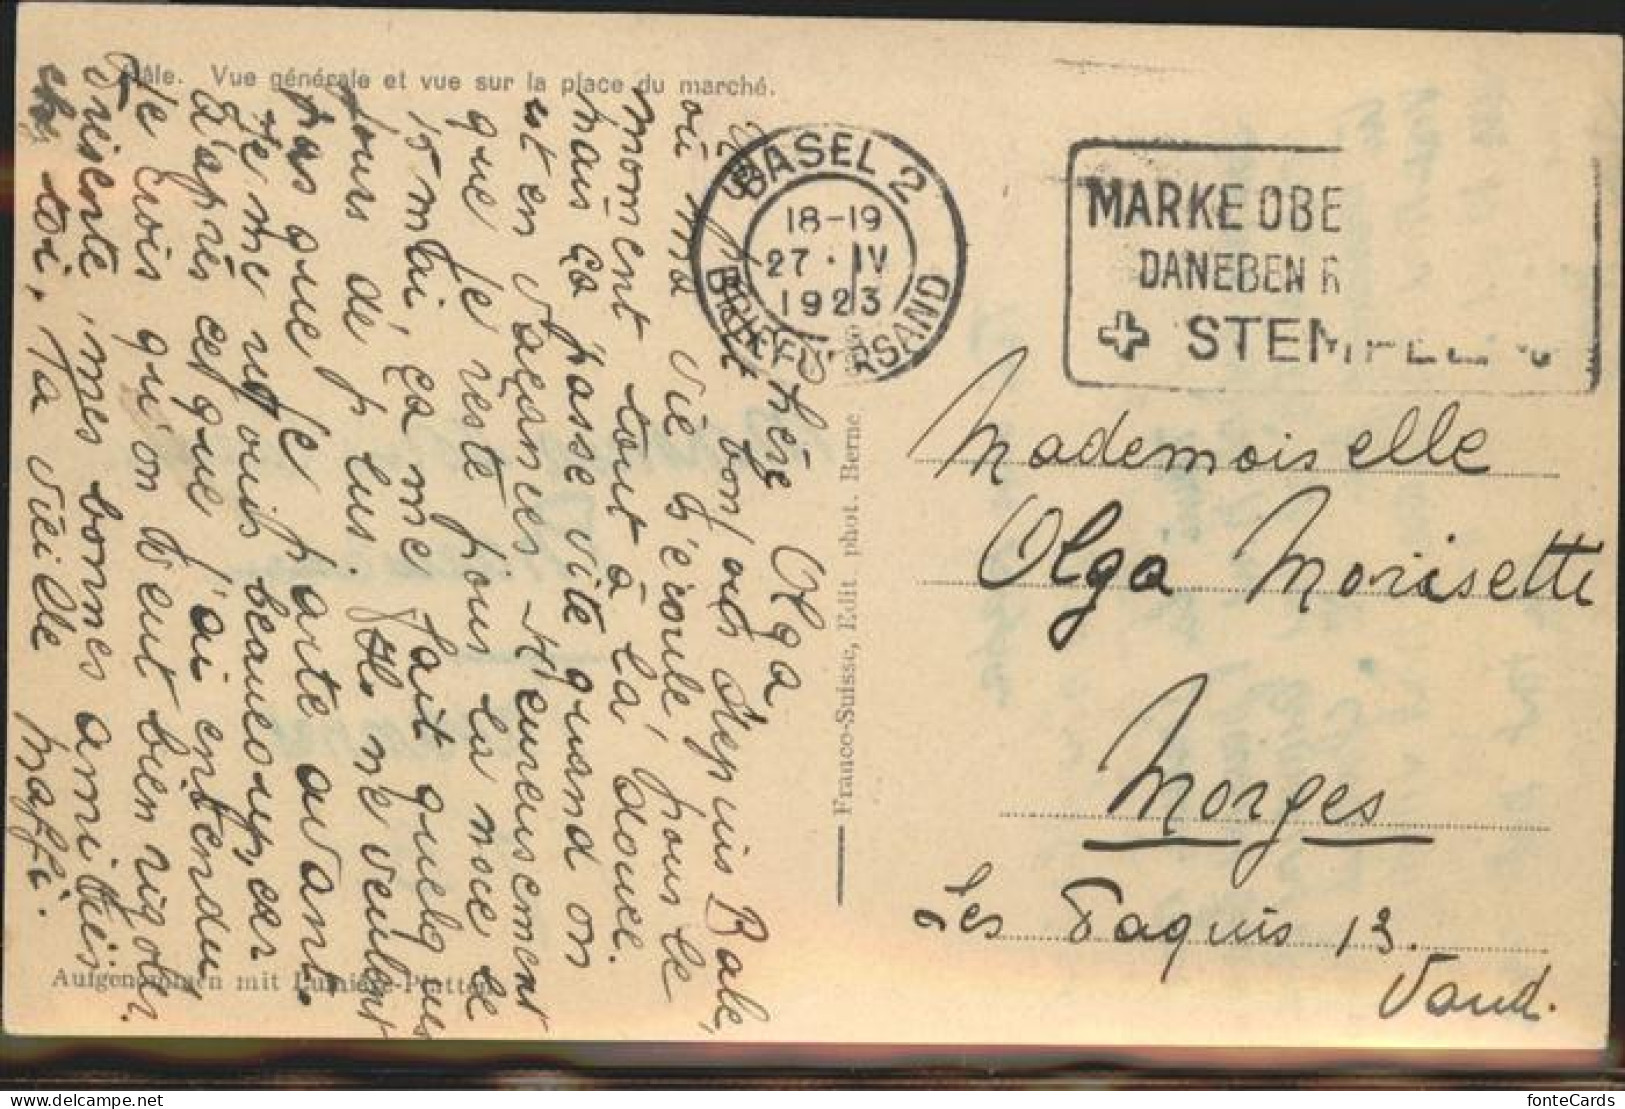 Bâle. Vue générale et vue sur la place du marché.
BASEL 2
18-19
27. IV
1923
BRIEFVERSAND
MARKE OBE
DANEBEN R
STEMPEL
Chère Olga
Un bonjour depuis Bâle,
où ma vie s'écoule, pour le
moment tout à la douce.
mais ça passe vite quand on
est en vacances. Heureusement
que je reste pour la nuse le
15 mai, ça me fait quelques
jours de plus. Ils ne veulent
pas que je parte avant.
Je me réjouis beaucoup, car
d'après ce que j'ai entendu
je crois qu'on veut bien rigoler.
Présente, mes bonnes amitiés
chez toi, Ta vieille Maffi.
Franco-Suisse, Edit phot. Berne
Aufgenommen mit Lumière-Platten
Mademoiselle
Olga Morisette
Morges
Les Paquis 13.
Vaud.
fonteCards